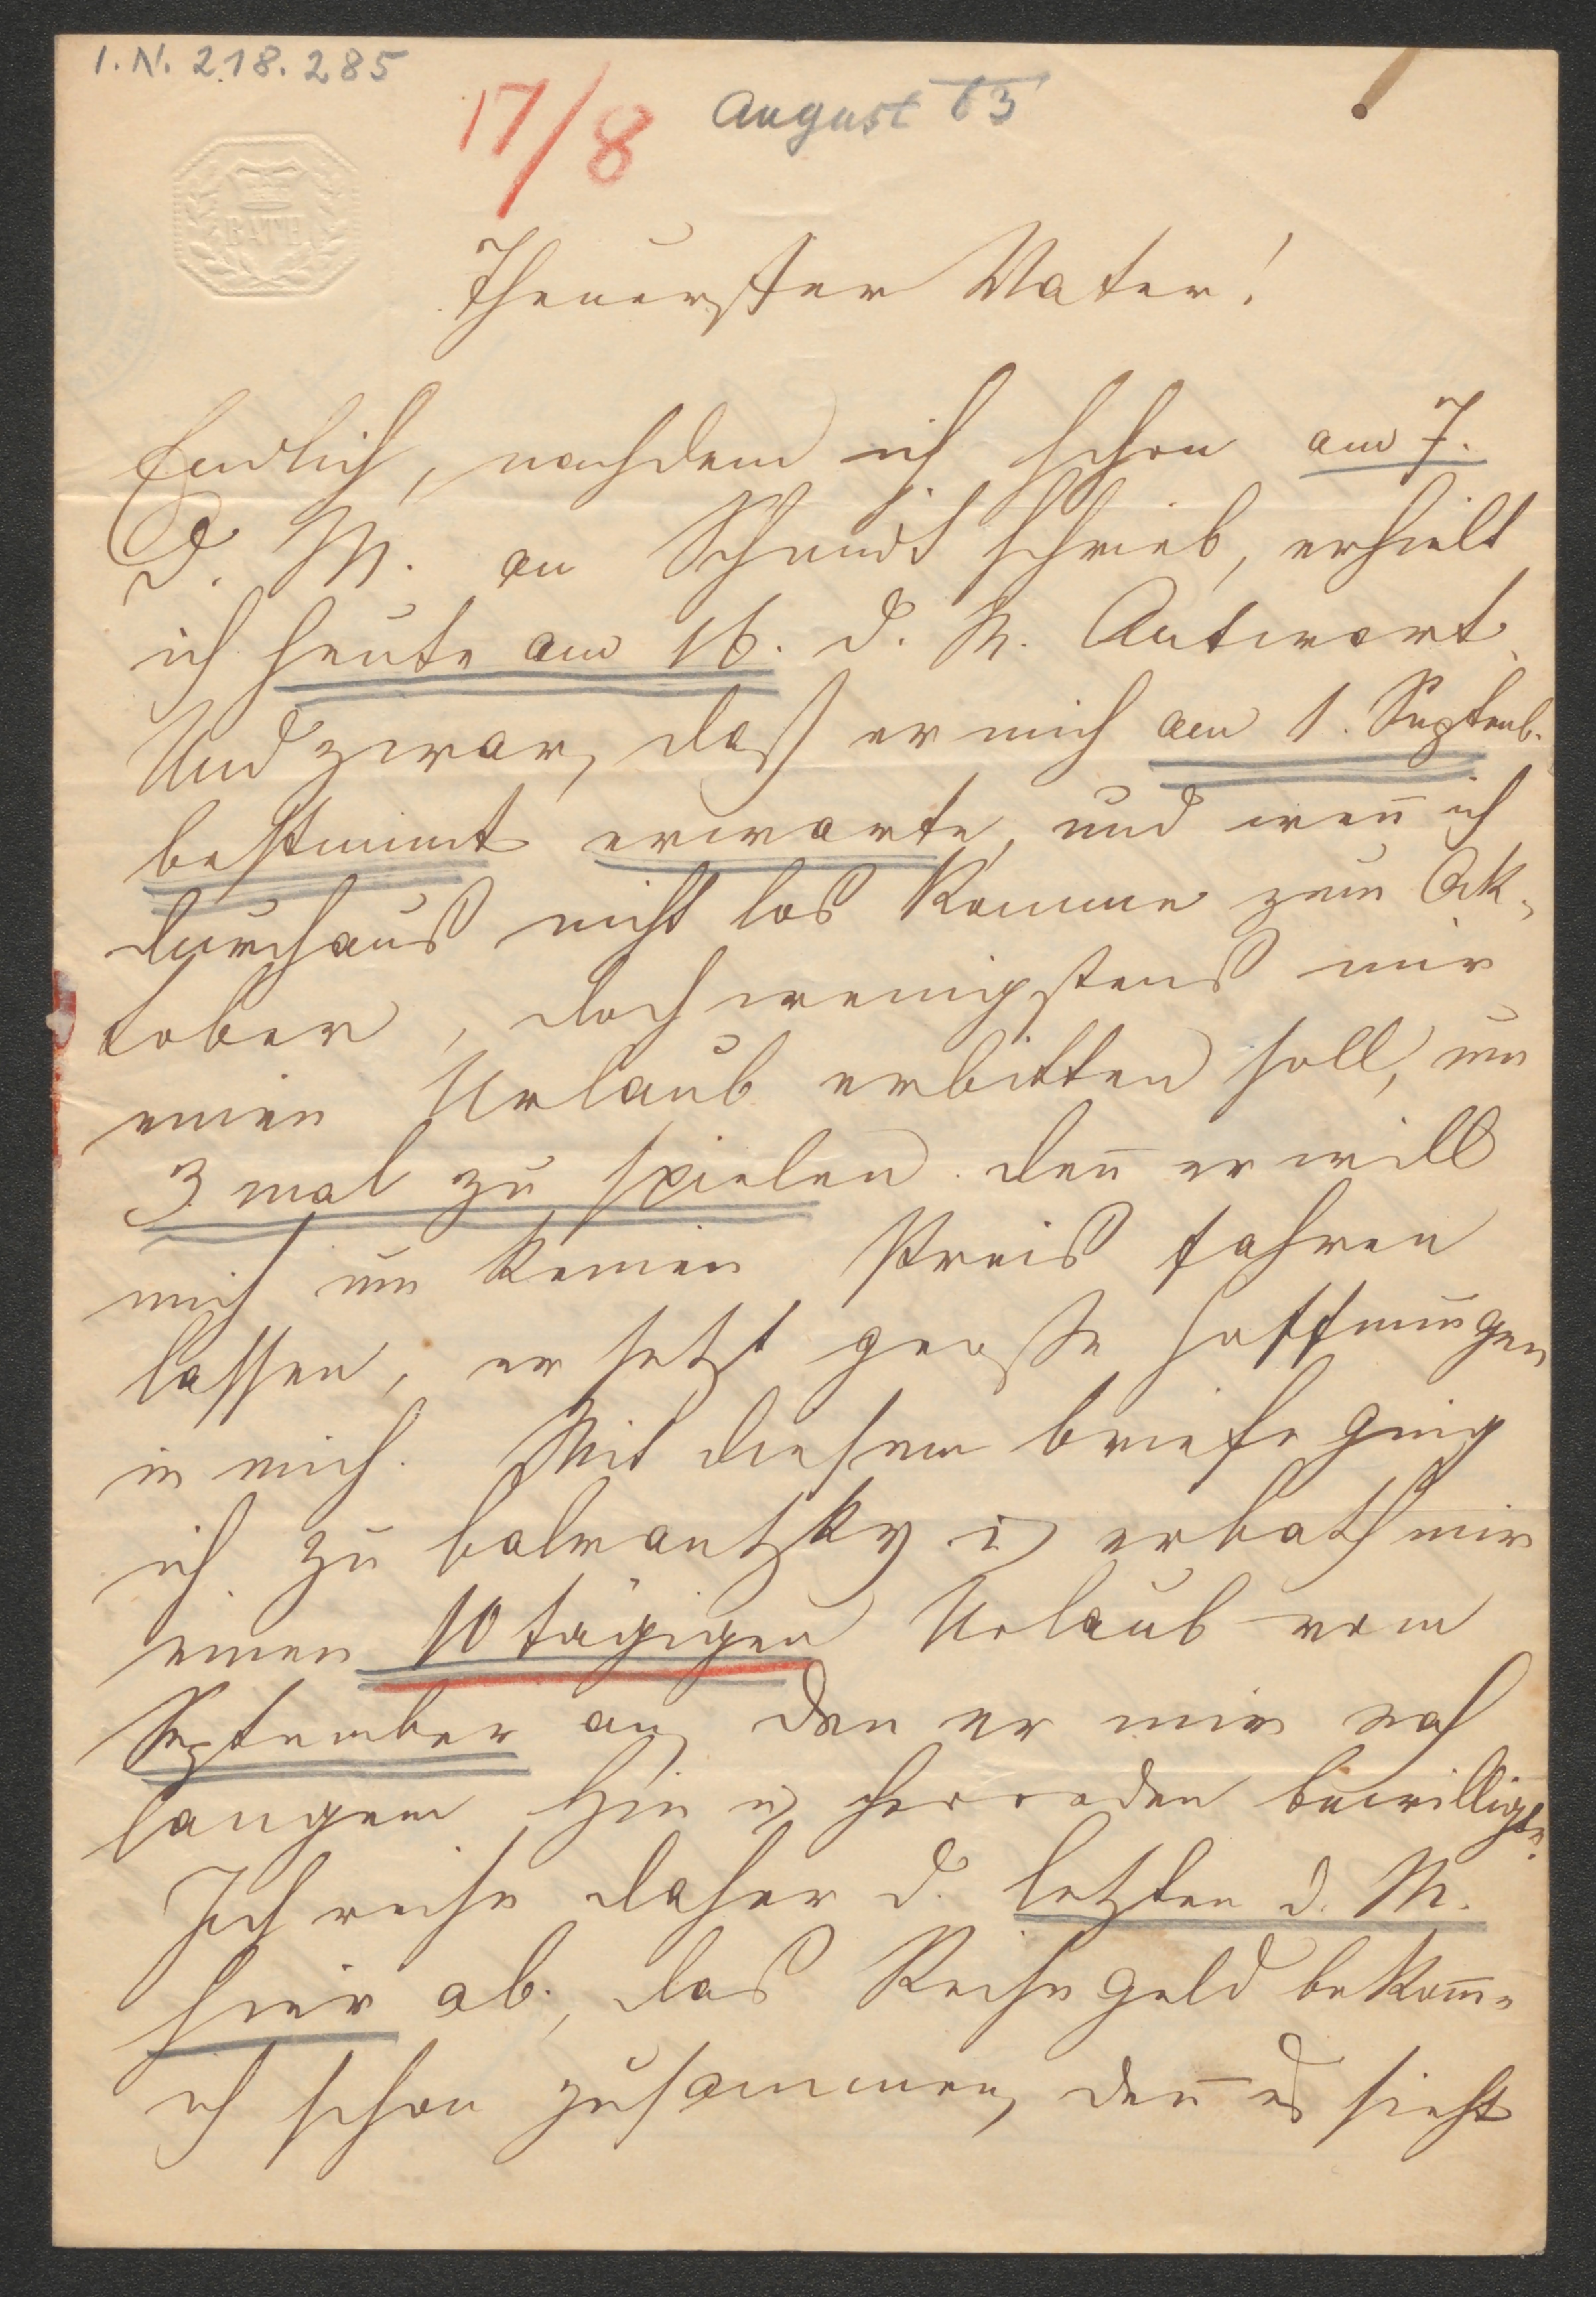 I. N. 218.285
17/8 August 63
BATH
Theuerster Vater!
Endlich, nachdem ich schon am 7.
d. M. an Schmidt schrieb, erhielt
ich heute am 16. d. M. Antwort.
Und zwar, daß er mich am 1. Septemb.
bestimmt erwarte, und weñ ich
durchaus nicht los komme zum Ok-
tober, doch wenigstens mir
einen Urlaub erbitten soll, um
3 mal zu spielen. deñ er will
mich um keinen Preis fahren
lassen, er setzt große Hoffnungen
in mich. Mit diesem Briefe ging
ich zu u erbath mir
einen 10 tägigen Urlaub vom
September an, den er mir nach
langem Hin u herreden bewilligte.
Ich reise daher d. letzten d. M.
hier ab., das Reisegeld bekom̄e
ich schon zusammen, deñ es sieht